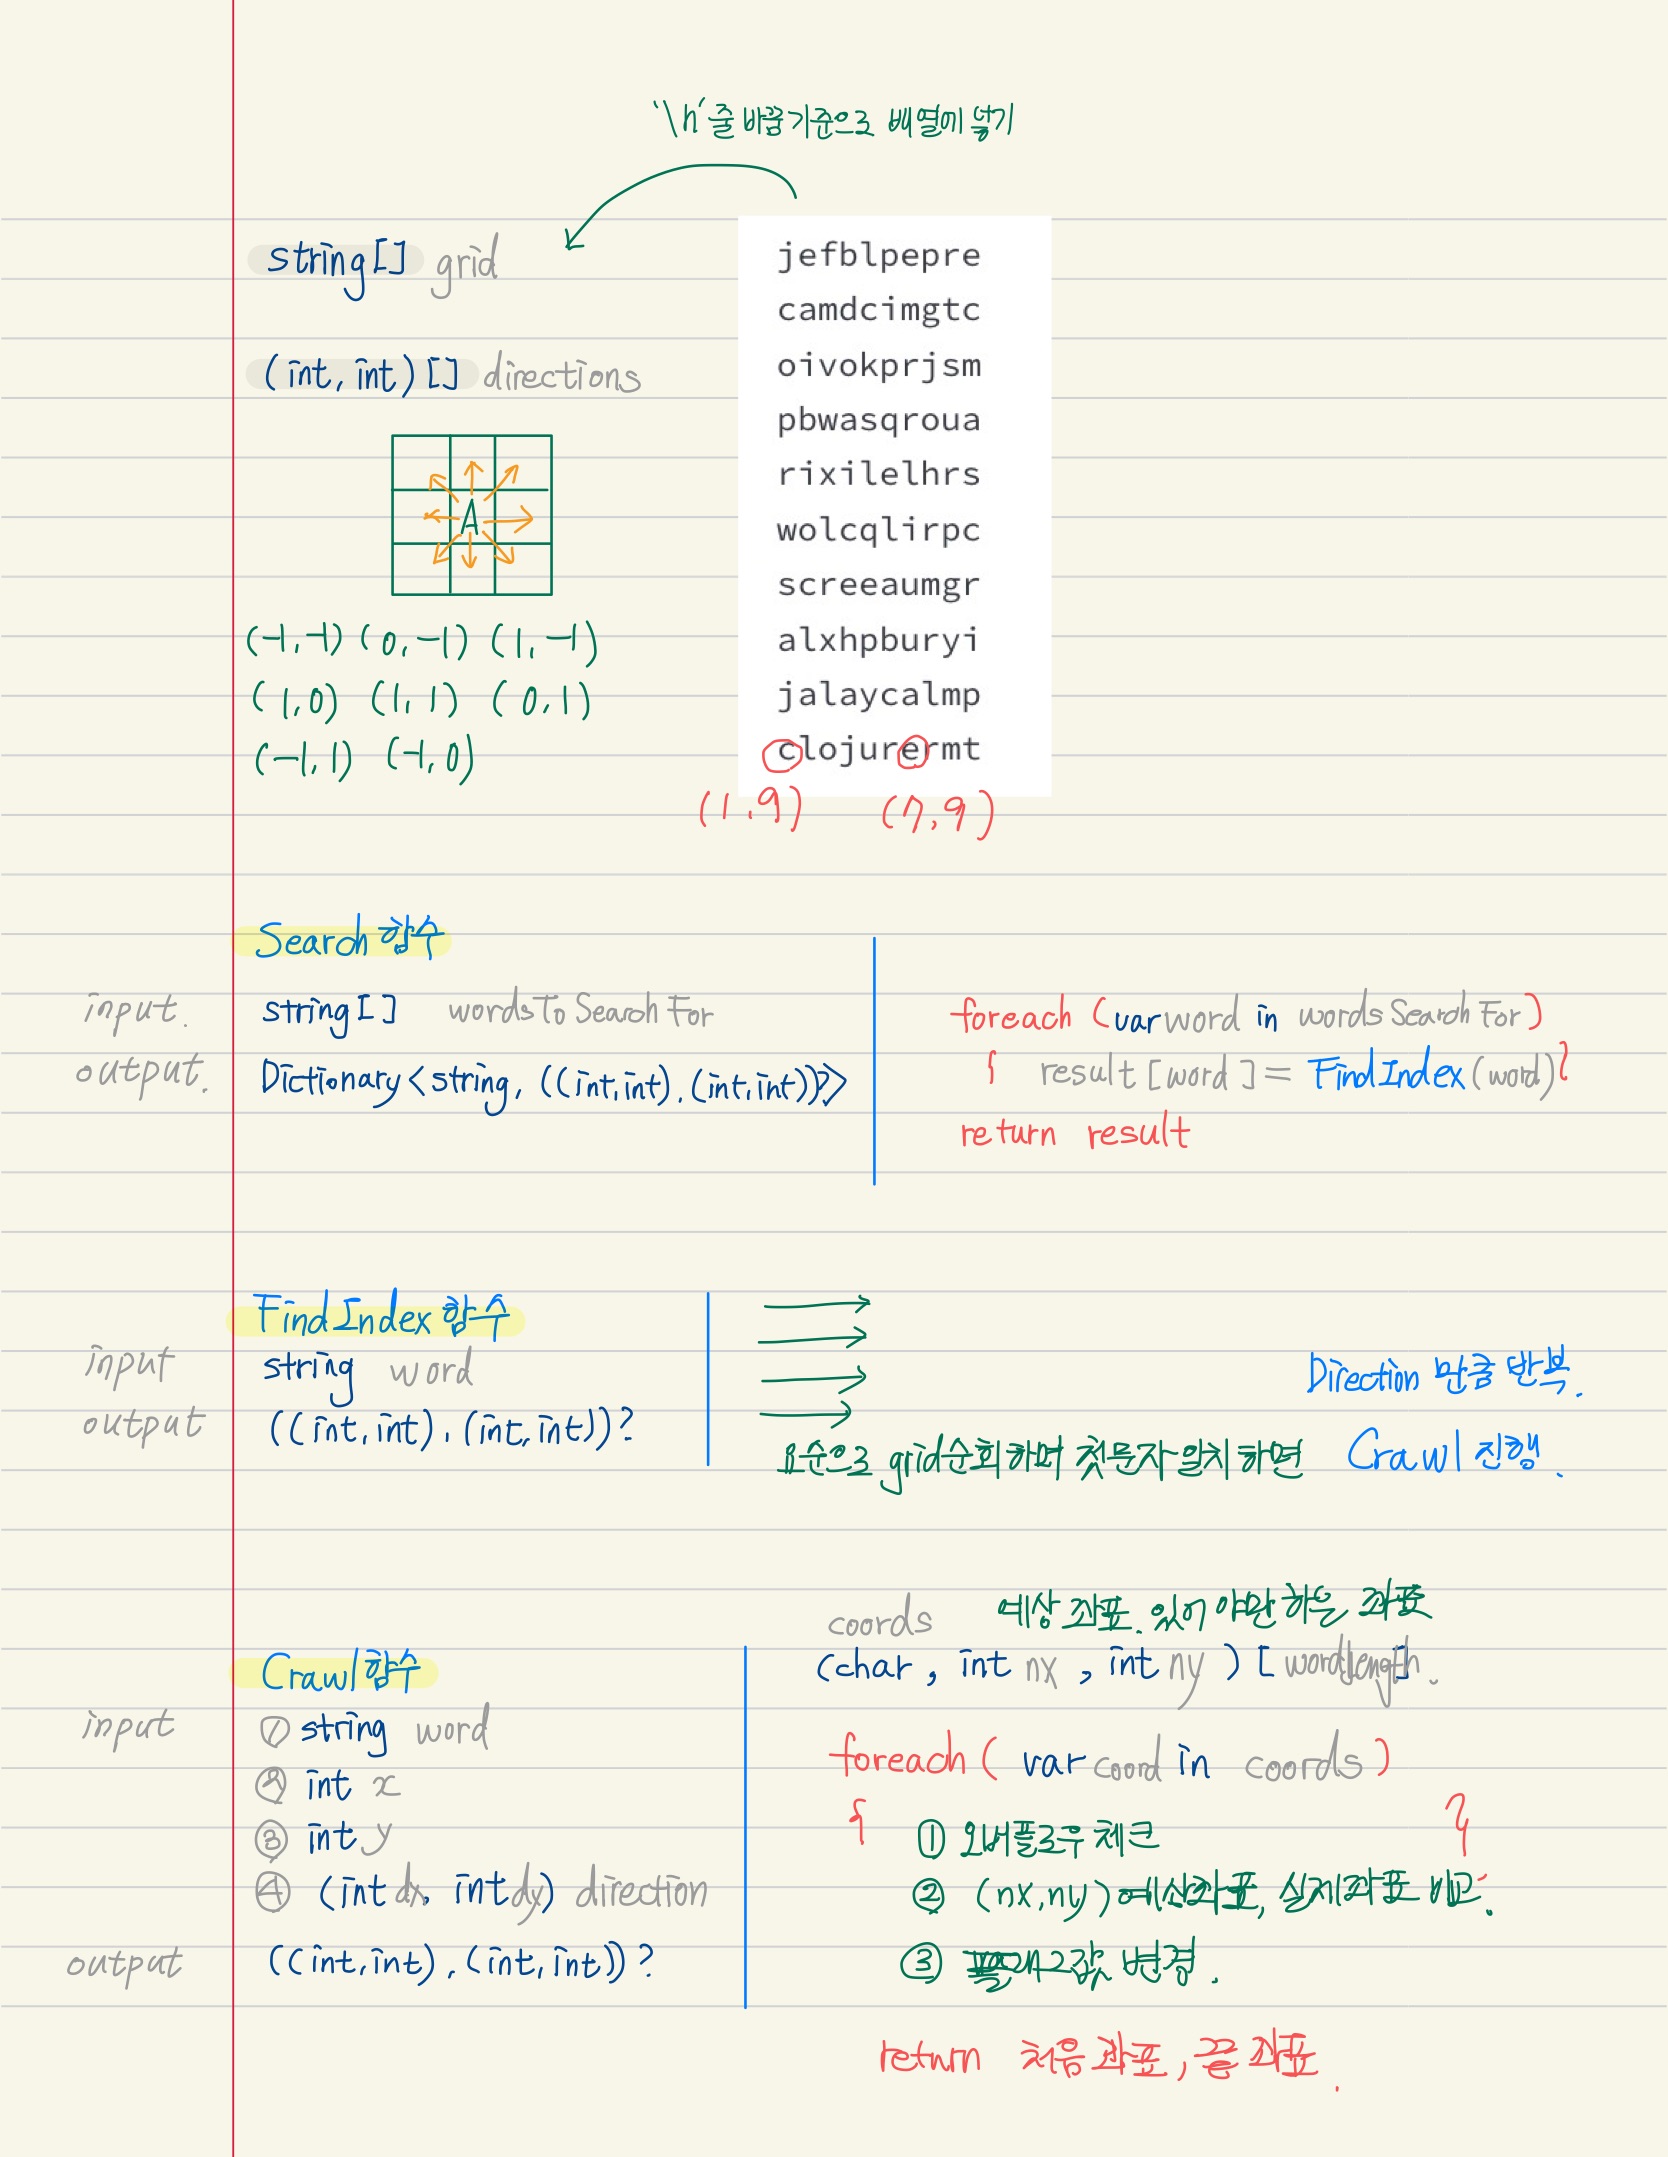 "\n" 줄바꿈 기준으로 배열에 넣기
string[] grid
(int, int)[] directions
A
(-1,-1) (0,-1) (1,-1)
(1,0) (1,1) (0,1)
(-1,1) (-1,0)
jefblpepre
camdcimgtc
oivokprjsm
pbwasqroua
rixilelhrs
wolcqlirpc
screeaumgr
alxhpburyi
jalaycalmp
clojurermt
(1,9) (7,9)
Search 함수
input. string[] wordsToSearchFor
output. Dictionary<string, ((int,int),(int,int))?>
foreach (var word in wordsSearchFor)
{ result[word] = FindIndex(word) }
return result
FindIndex 함수
input string word
output ((int,int),(int,int))?
Direction 만큼 반복.
순으로 grid순회하며 첫문자 일치하면 Crawl 진행.
Crawl 함수
input ① string word
② int x
③ int y
④ (int dx, int dy) direction
output ((int,int),(int,int))?
coords 예상 좌표. 있어야만 하는 좌표
(char, int nx, int ny)[wordlength].
foreach (var coord in coords)
{ ① 오버플로우 체크 }
② (nx,ny) 예상좌표, 실제좌표 비교.
③ 값 변경.
return 처음좌표, 끝 좌표.